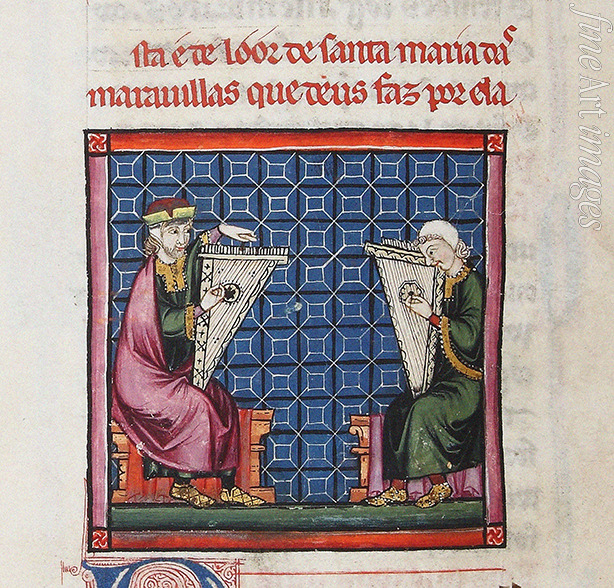 sta é de loor de santa maria das
marauillas que deus faz por ela
fineArt images